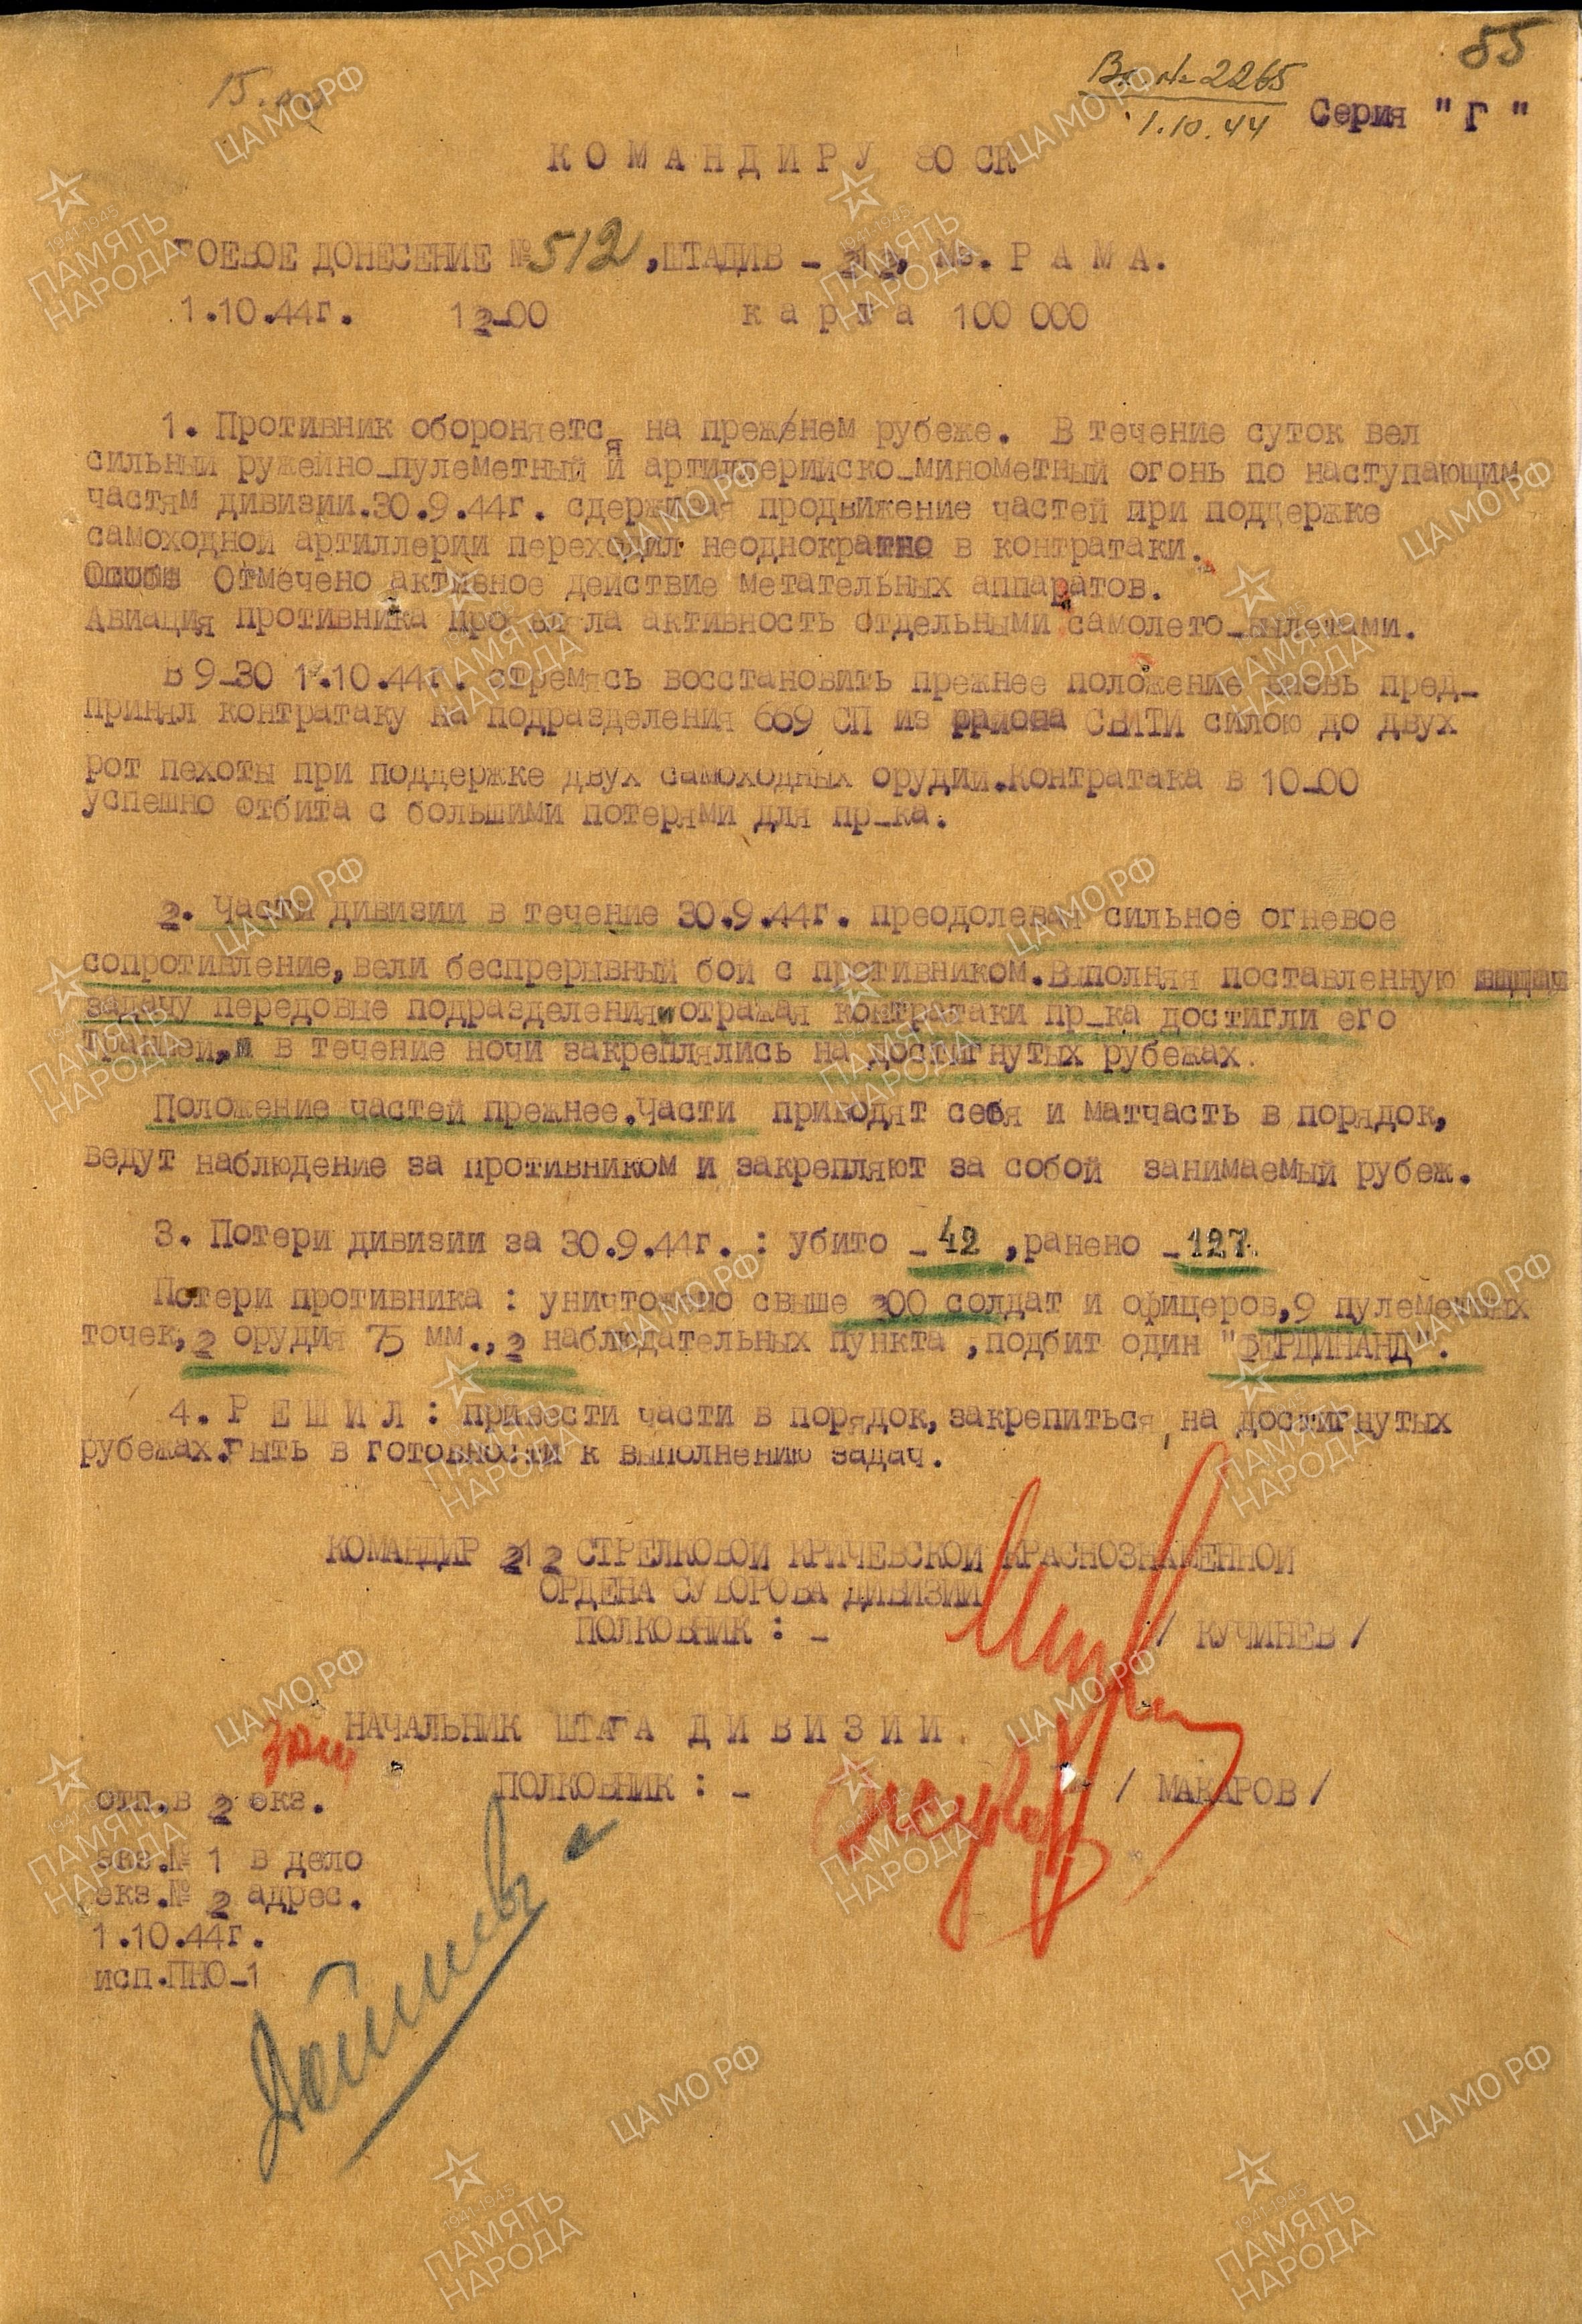 55
Вх. № 2265
1.10.44
Серия "Г"
15.
КОМАНДИРУ 80 СК
БОЕВОЕ ДОНЕСЕНИЕ № 512, ШТАДИВ – 212, МЗ. РАМА.
1.10.44г. 12-00 карта 100 000
1. Противник обороняется на прежнем рубеже. В течение суток вел
сильный ружейно-пулеметный и артиллерийско-минометный огонь по наступающим
частям дивизии.30.9.44г. сдерживая продвижение частей при поддержке
самоходной артиллерии переходил неоднократно в контратаки.
Отмечено активное действие метательных аппаратов.
Авиация противника проявляла активность отдельными самолето-вылетами.
В 9-30 1.10.44г. стремясь восстановить прежнее положение вновь пред-
принял контратаку на подразделения 669 СП из района СВИТИ силою до двух
рот пехоты при поддержке двух самоходных орудий.Контратака в 10-00
успешно отбита с большими потерями для пр-ка.
2. Части дивизии в течение 30.9.44г. преодолевая сильное огневое
сопротивление, вели беспрерывный бой с противником.Выполняя поставленную
задачу передовые подразделения отражая контратаки пр-ка достигли его
траншей,и в течение ночи закреплялись на достигнутых рубежах.
Положение частей прежнее.Части приводят себя и матчасть в порядок,
ведут наблюдение за противником и закрепляют за собой занимаемый рубеж.
3. Потери дивизии за 30.9.44г. : убито - 42 ,ранено - 127.
Потери противника : уничтожено свыше 200 солдат и офицеров,9 пулеметных
точек, 2 орудия 75 мм., 2 наблюдательных пункта ,подбит один "ФЕРДИНАНД".
4. РЕШИЛ : привести части в порядок,закрепиться на достигнутых
рубежах.Быть в готовности к выполнению задач.
КОМАНДИР 212 СТРЕЛКОВОЙ КРИЧЕВСКОЙ КРАСНОЗНАМЕННОЙ
ОРДЕНА СУВОРОВА ДИВИЗИИ
ПОЛКОВНИК : - / КУЧИНЕВ /
НАЧАЛЬНИК ШТАБА ДИВИЗИИ
ПОЛКОВНИК : - / МАКАРОВ /
отп.в 2 экз.
экз.№ 1 в дело
экз.№ 2 адрес.
1.10.44г.
исп.ПНО-1
ЦА МО РФ
1941-1945
ПАМЯТЬ
НАРОДА